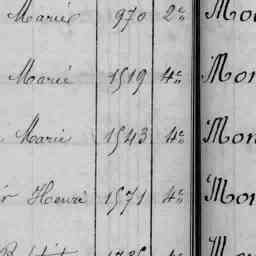 Marie 970 2e Mo
Marie 1519 4e Mon
Marie 1543 4e Mon
r Henri 1571 4e Mon